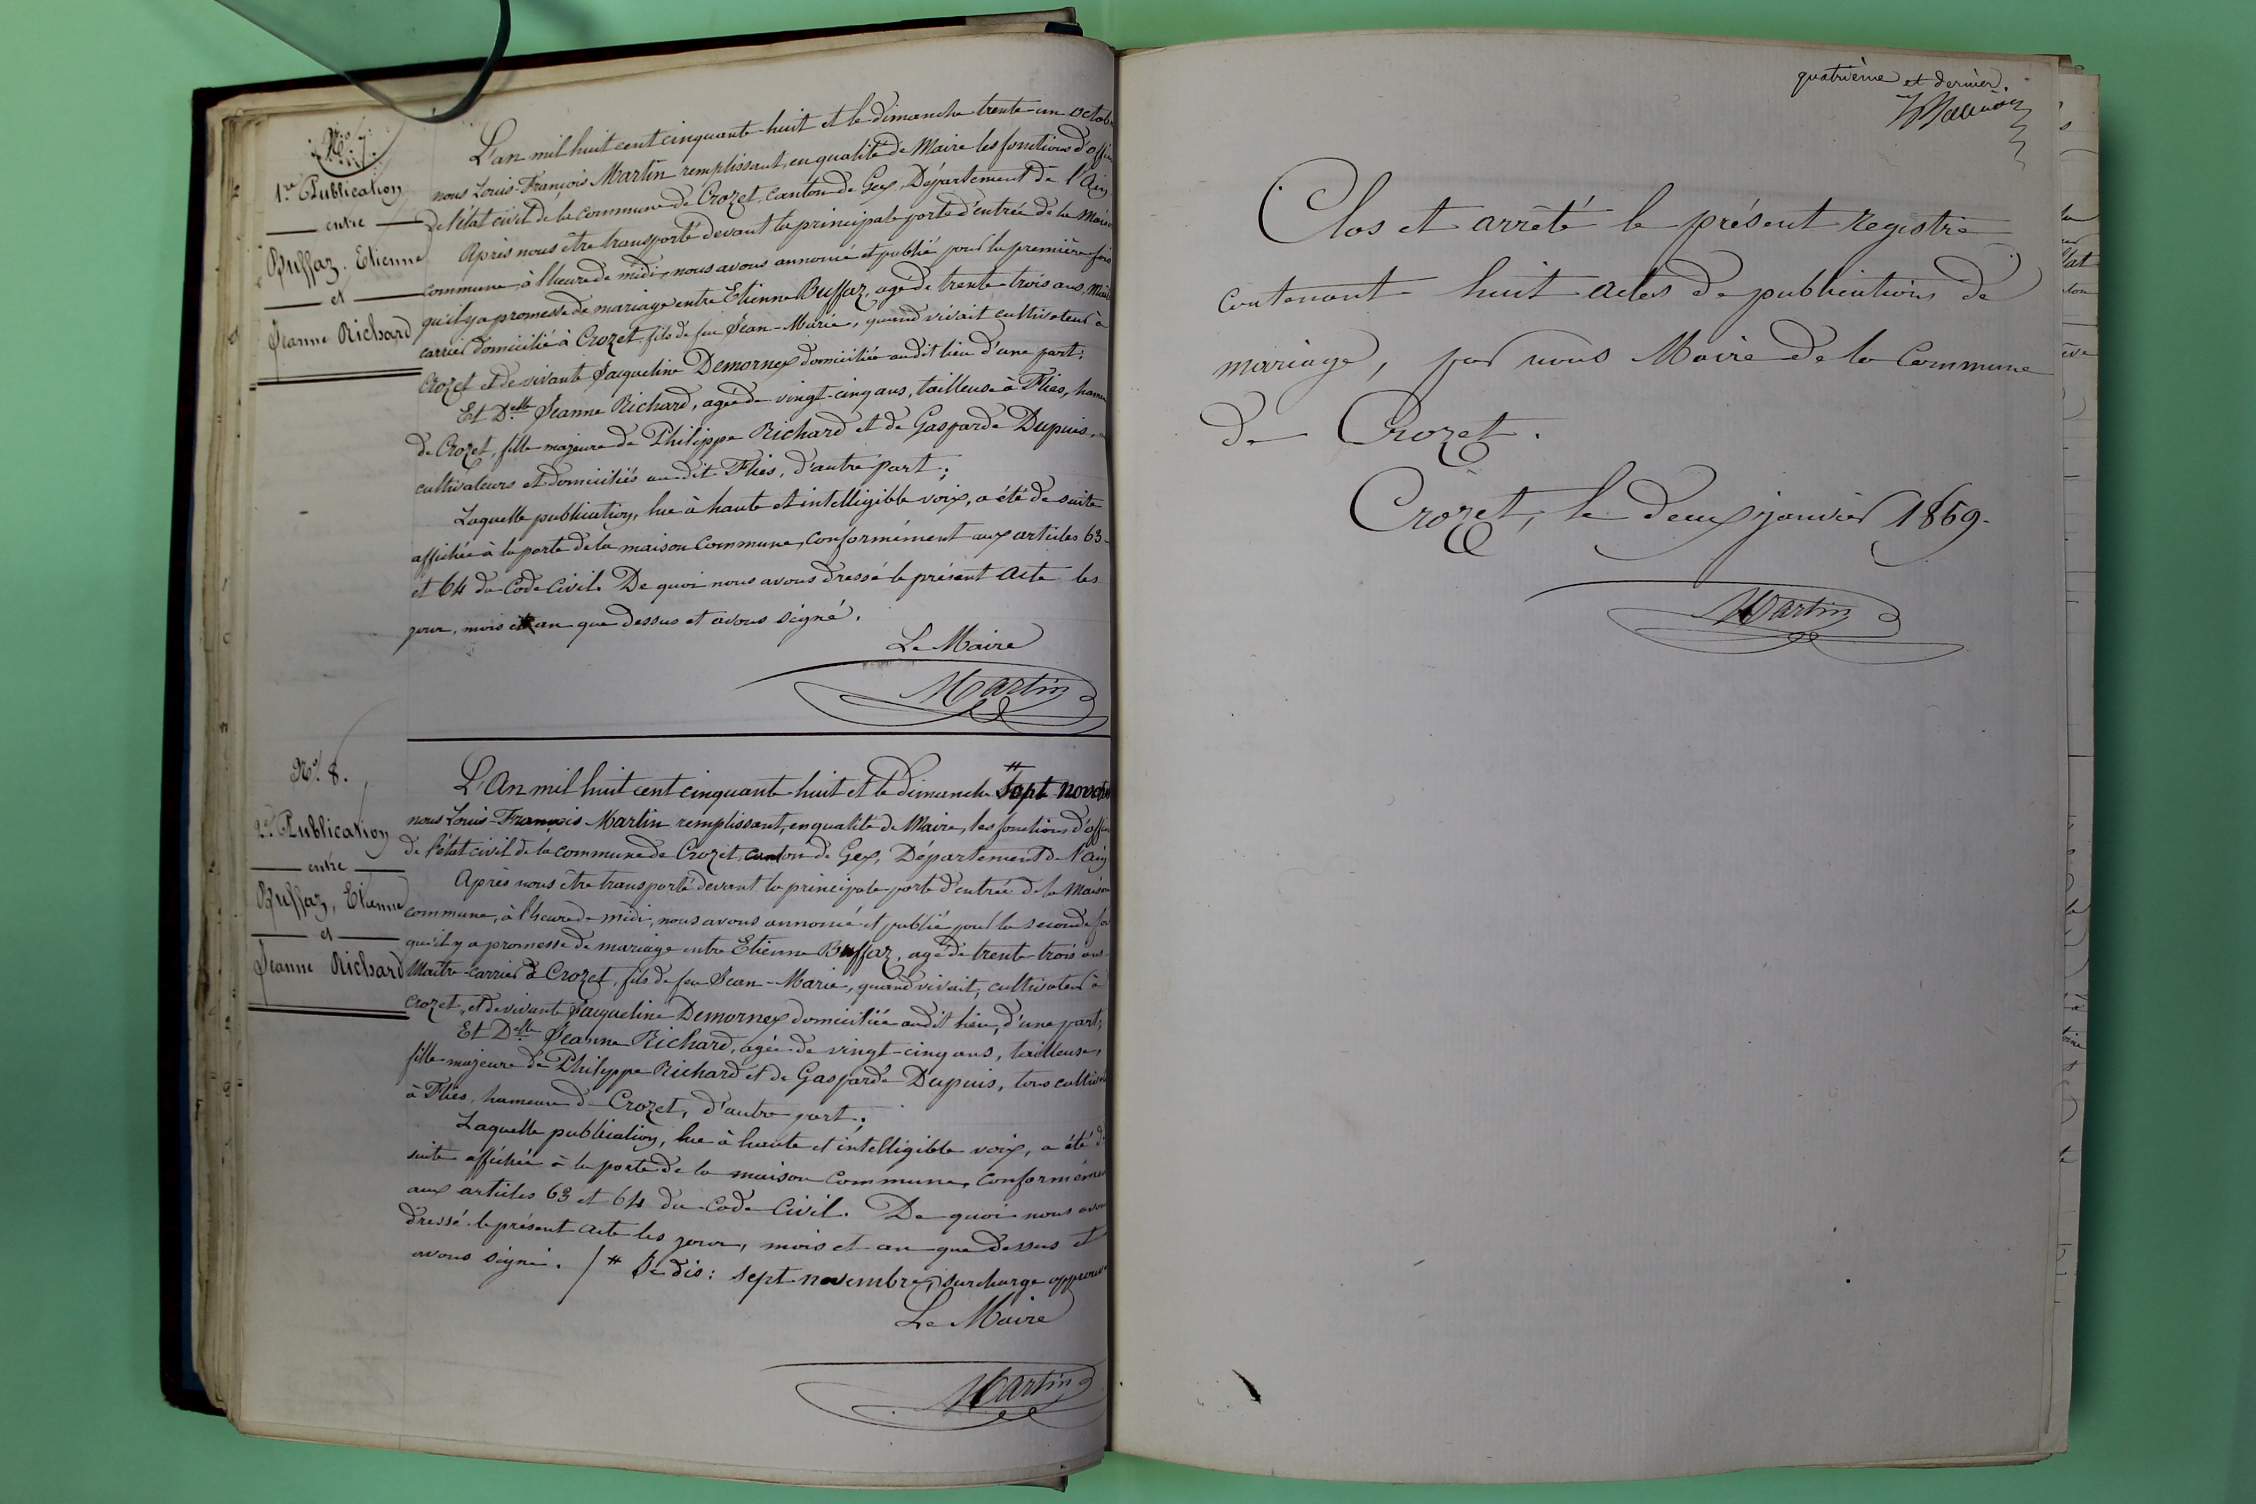 N.º 7.
1.re Publication
entre
Buffaz. Etienne
et
Jeanne Richard
L'an mil huit cent cinquante-huit et le dimanche trente-un Octob
nous Louis-François Martin remplissant, en qualité de Maire les fonctions d'offic
de l'état civil de la commune de Crozet, canton de Gex, Département de l'Ain
Après nous être transporté devant la principale porte d'entrée de la Maison
commune, à l'heure de midi, nous avons annoncé et publié pour la première fois
qu'il y a promesse de mariage entre Etienne Buffaz, agé de trente-trois ans, Maît
carrier domicilié à Crozet, fils de feu Jean-Marie, quand vivait cultivateur à
Crozet et de vivante Jacqueline Demornex domiciliée audit lieu d'une part;
Et D.elle Jeanne Richard, agée de vingt-cinq ans, tailleuse à Flies, hameau
de Crozet, fille majeure de Philippe Richard et de Gasparde Dupuis,
cultivateurs et domiciliés audit Flies, d'autre part;
Laquelle publication, lue à haute et intelligible voix, a été de suite
affichée à la porte de la maison Commune, conformément aux articles 63
et 64 du Code Civil. De quoi nous avons dressé le présent Acte les
jour, mois et an que dessus et avons signé.
Le Maire
Martin
N.º 8.
2.e Publication
entre
Buffaz, Etienne
et
Jeanne Richard
L'An mil huit cent cinquante-huit et le dimanche # Sept novembre
nous Louis-François Martin remplissant, en qualité de Maire, les fonctions d'offic
de l'état civil de la commune de Crozet, canton de Gex, Département de l'Ain
Après nous être transporté devant la principale porte d'entrée de la Maison
commune, à l'heure de midi, nous avons annoncé et publié pour la seconde foi
qu'il y a promesse de mariage entre Etienne Buffaz, agé de trente trois ans
Maître-carrier à Crozet, fils de feu Jean-Marie, quand vivait, cultivateur à
Crozet, et de vivante Jacqueline Demornex domiciliée audit lieu, d'une part;
Et D.elle Jeanne Richard, agée de vingt-cinq ans, tailleuse,
fille majeure de Philippe Richard et de Gasparde Dupuis, tous cultiva
à Flies, hameau de Crozet, d'autre part;
Laquelle publication, lue à haute et intelligible voix, a été d
suite affichée à la porte de la maison Commune, Conformémen
aux articles 63 et 64 du Code Civil. De quoi nous avon
dressé le présent Acte les jour, mois et an que dessus et
avons signé. / # Je dis: sept novembre, surcharge approuvé
Le Maire
Martin
quatrième et dernier.
Clos et arrêté le présent registre
contenant huit actes de publications de
mariage, par nous Maire de la Commune
de Crozet.
Crozet, le deux janvier 1859.
Martin